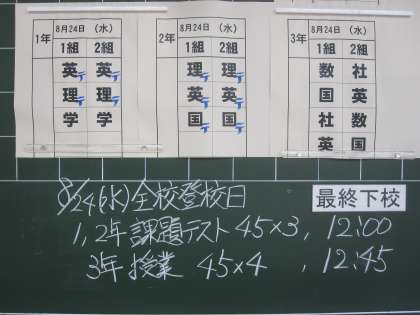 1年 8月24日 (水)
1組 2組
英テ 英テ
理テ 理テ
学 学
2年 8月24日 (水)
1組 2組
理テ 理テ
英テ 英テ
国テ 国テ
3年 8月24日 (水)
1組 2組
数 社
国 英
社 数
英 国
8/24(水)全校登校日 最終下校
1,2年 課題テスト 45×3, 12:00
3年 授業 45×4 , 12:45